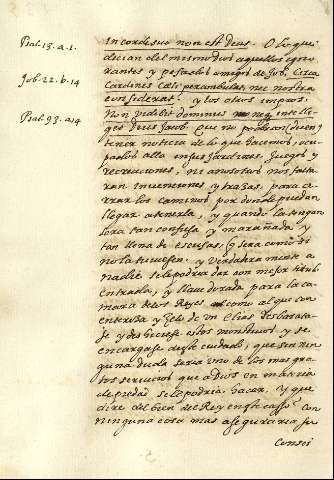 Psal. 13. a. 1.
Job. 22. b. 14
Psal. 93. a 4
in corde suo non est Deus. O lo que
decian del mismo Dios aquellos igno
rantes y pesados amigos de Job, Circa
Cardines Cœli perambulat, nec nostra
considerat. y los otros impios.
Non videbit Dominus nec intelli
get Deus Jacob. que no podemos
tener noticia de lo que hacemos, ocu
pados alla en sus jardines, juegos y
recreaciones, ni a nosotros nos falta
ran invenciones y trazas, para ce
rrar los caminos, por donde puedan
llegar a tenerla, y quando la tengan
sera tan confusa y marañada y
tan llena de escusas, q sera como si
no la tuviesen. y verdaderamente a
nadie se le podria dar con mejor titulo
entrada, y llave dorada para la ca
mara de los Reyes, como al que con
entereza y zelo de un Elias desbaratas
se y deshiciese estos monstruos y se
encargase deste cuidado, que sin nin
guna duda seria uno de los mas gra
tos servicios que a Dios en materia
de piedad se le podria hacer. y que
dire del bien del Rey en este casso? con
ninguna cosa mas aseguraria su
Consci